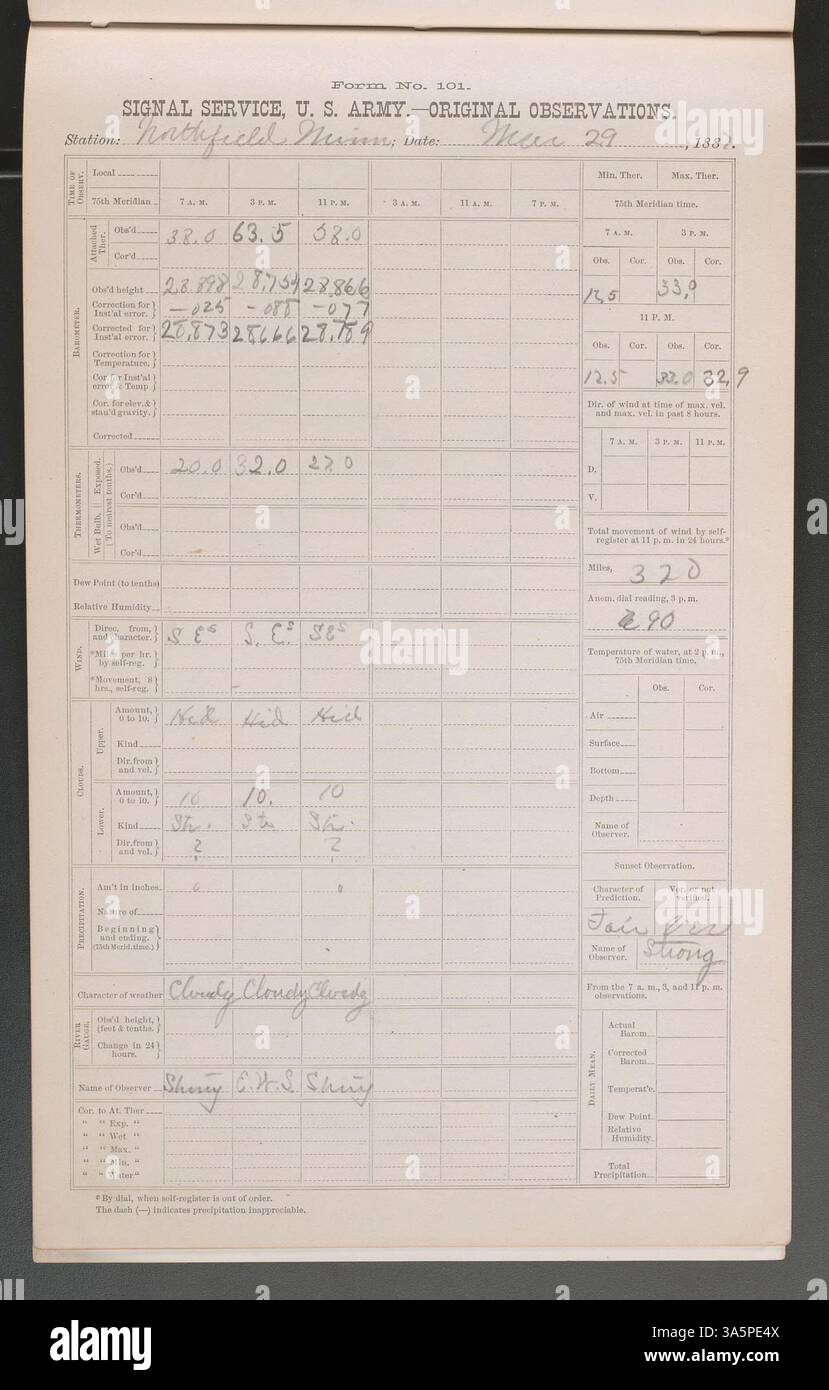 Form No. 101.
SIGNAL SERVICE, U. S. ARMY.—ORIGINAL OBSERVATIONS.
Station: Northfield Minn; Date: Mar 29, 188
TIME OF OBSERV.
Local
75th Meridian 7 A. M. 3 P. M. 11 P. M. 3 A. M. 11 A. M. 7 P. M.
BAROMETER.
Attached Ther.
Obs'd 38.0 63.5 58.0
Cor'd
Obs'd height 28.898 28.754 28.866
Correction for Inst'al error. —025 -088 -077
Corrected for Inst'al error. 28.873 28.666 28.789
Correction for Temperature.
Cor. for Inst'al error & Temp
Cor. for elev. & stan'd gravity.
Corrected
THERMOMETERS.
Wet Bulb. Exposed.
(To nearest tenths.)
Obs'd 20.0 32.0 27.0
Cor'd
Obs'd
Cor'd
Dew Point (to tenths)
Relative Humidity
WIND.
Direc. from, and character. S Es S. Es. SEs
*Miles per hr. by self-reg.
*Movement, 8 hrs., self-reg.
CLOUDS.
Upper.
Amount, 0 to 10. Hid Hid Hid
Kind
Dir. from and vel.
Lower.
Amount, 0 to 10. 10 10. 10
Kind Str. Str Str.
Dir. from and vel. ? ?
PRECIPITATION.
Am't in inches. 0 0
Nature of
Beginning and ending. (75th Merid. time.)
Character of weather Cloudy Cloudy Cloudy
RIVER GAUGE.
Obs'd height, (feet & tenths.
Change in 24 hours.
Name of Observer Strong E.W.S. Strong
Cor. to At. Ther
“ “ Exp. “
“ “ Wet “
“ “ Max. “
“ “ Min. “
“ “ Water “
Min. Ther. Max. Ther.
75th Meridian time.
7 A. M. 3 P. M.
Obs. Cor. Obs. Cor.
12.5 33.0
11 P. M.
Obs. Cor. Obs. Cor.
12.5 33.0 32.9
Dir. of wind at time of max. vel. and max. vel. in past 8 hours.
7 A. M. 3 P. M. 11 P. M.
D.
V.
Total movement of wind by self-register at 11 p. m. in 24 hours.*
Miles, 320
Anem. dial reading, 3 p. m.
290
Temperature of water, at 2 p. m., 75th Meridian time,
Obs. Cor.
Air
Surface
Bottom
Depth
Name of Observer.
Sunset Observation.
Character of Prediction. Ver. or not verified.
Fair Ver
Name of Observer. Strong
From the 7 a. m., 3, and 11 p. m. observations.
DAILY MEAN.
Actual Barom.
Corrected Barom.
Temperat'e.
Dew Point.
Relative Humidity.
Total Precipitation.
* By dial, when self-register is out of order.
The dash (—) indicates precipitation inappreciable.
alamy
alamy
alamy
alamy
Image ID: 3A5PE4X
www.alamy.com